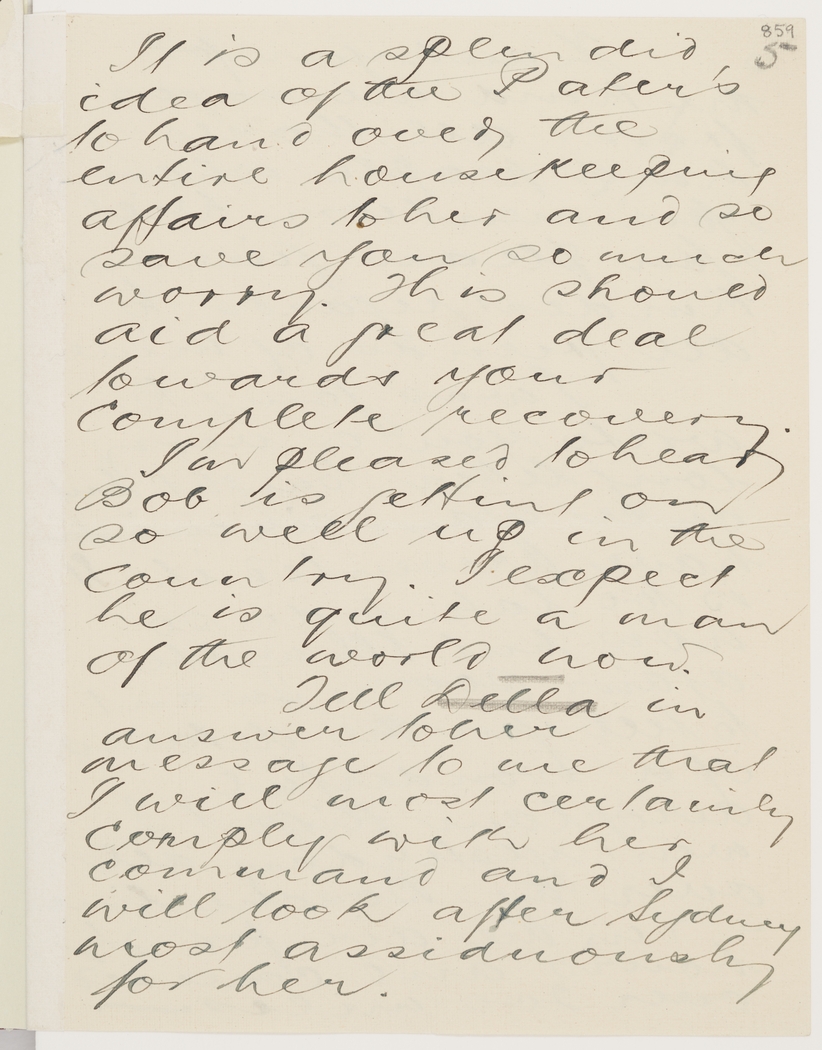 859
5
It is a splendid
idea of the Pater's
to hand over the
entire housekeeping
affairs to her and so
save you so much
worry. This should
aid a great deal
towards your
complete recovery.
I'm pleased to hear
Bob is getting on
so well up in the
country. I expect
he is quite a man
of the world now.
Tell Della in
answer to her
message to me that
I will most certainly
comply with her
command and I
will look after Sydney
most assiduously
for her.